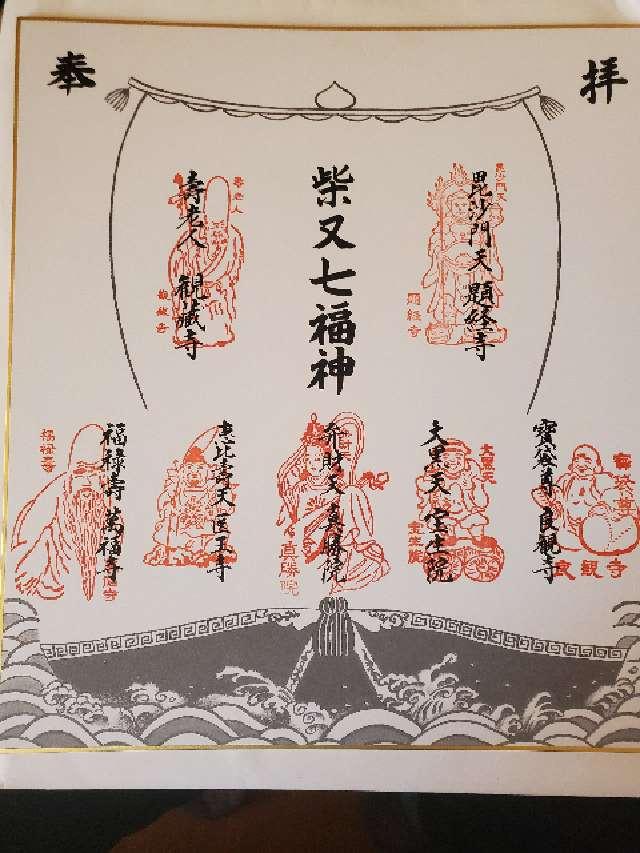 奉拝
柴又七福神
毘沙門天 題経寺
毘沙門天
題経寺
壽老人 観蔵寺
壽老人
観蔵寺
寶袋尊 良観寺
寶袋尊
良観寺
大黒天 宝生院
大黒天
宝生院
弁財天 真勝院
真勝院
恵比壽天 医王寺
福禄寿 萬福寺
福禄寿